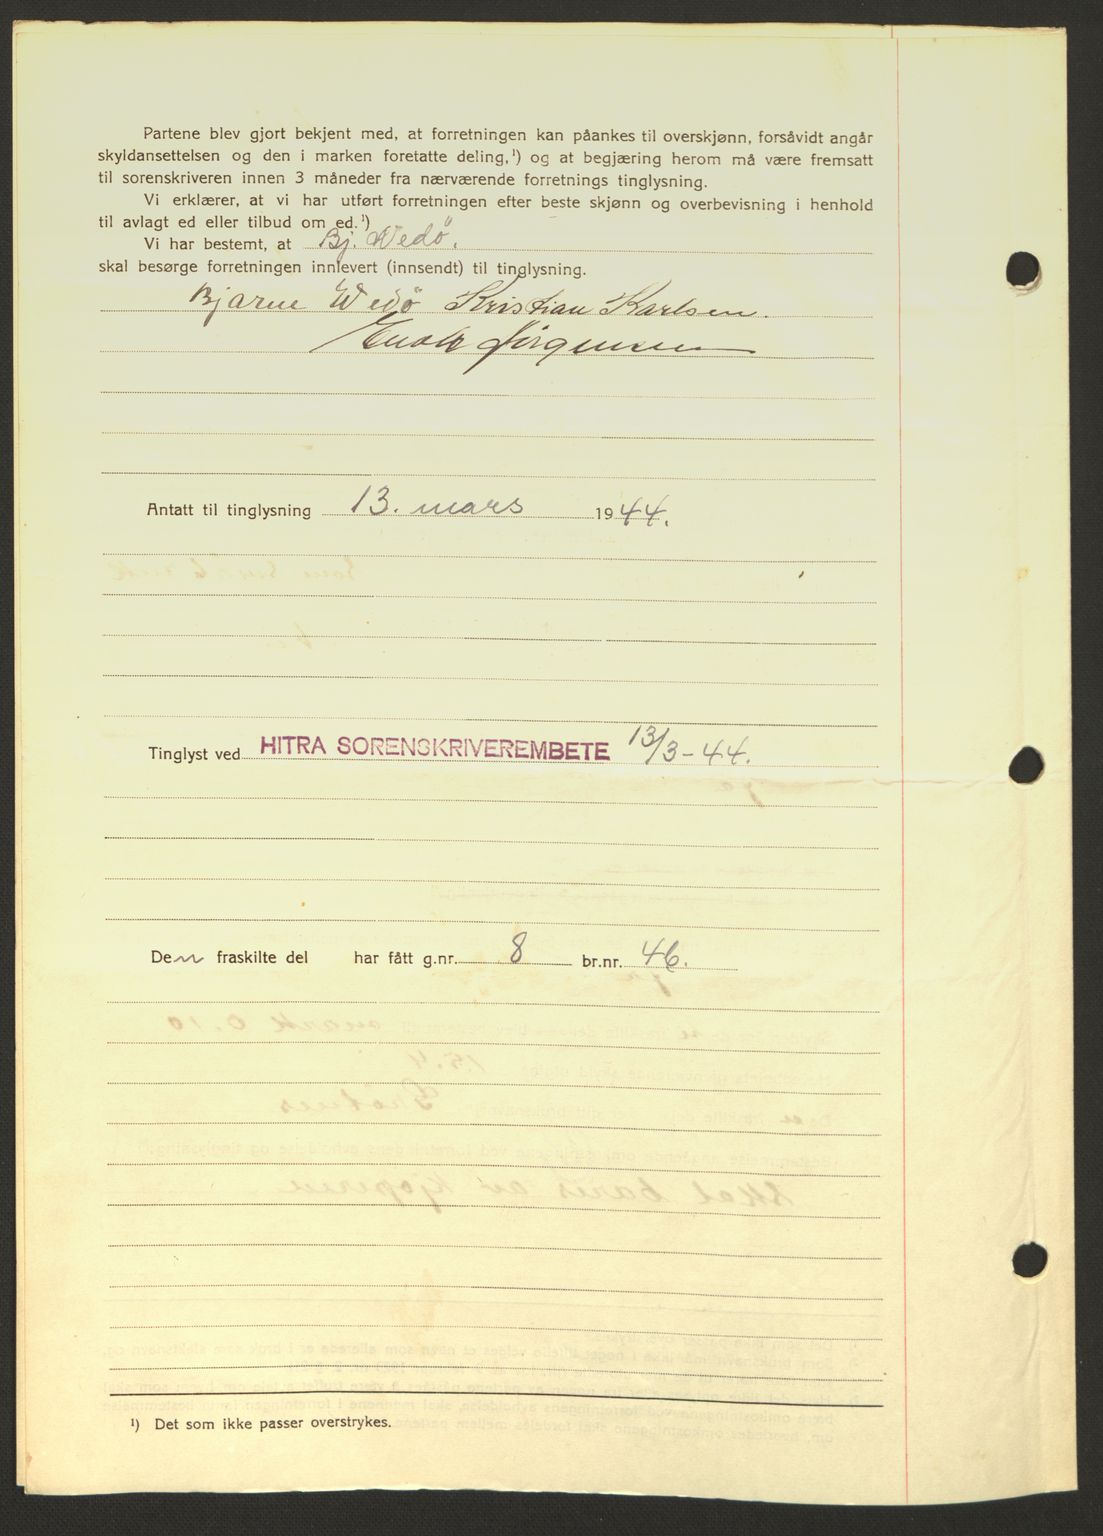 Partene blev gjort bekjent med, at forretningen kan påankes til overskjønn, forsåvidt angår
skyldansettelsen og den i marken foretatte deling,¹) og at begjæring herom må være fremsatt
til sorenskriveren innen 3 måneder fra nærværende forretnings tinglysning.
Vi erklærer, at vi har utført forretningen efter beste skjønn og overbevisning i henhold
til avlagt ed eller tilbud om ed.¹)
Vi har bestemt, at Bj. Wedö.
skal besørge forretningen innlevert (innsendt) til tinglysning.
Bjarne Wedö Kristian Karlsen.
Jørgensen
Antatt til tinglysning 13. mars 1944.
Tinglyst ved HITRA SORENSKRIVEREMBETE 13/3-44.
Den fraskilte del har fått g.nr. 8 br.nr. 46.
¹) Det som ikke passer overstrykes.